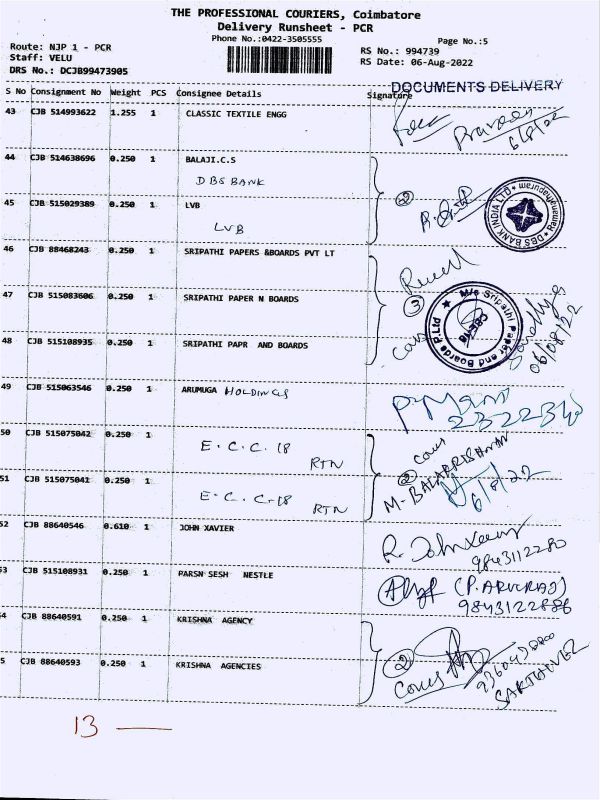 THE PROFESSIONAL COURIERS, Coimbatore
Delivery Runsheet - PCR
Phone No.:0422-3505555
Page No.:5
Route: NJP 1 - PCR
Staff: VELU
DRS No.: DCJB99473905
RS No.: 994739
RS Date: 06-Aug-2022
DOCUMENTS DELIVERY
S No Consignment No Weight PCS Consignee Details Signature
43 CJB 514993622 1.255 1 CLASSIC TEXTILE ENGG
Praveen
6/8/22
44 CJB 514638696 0.250 1 BALAJI.C.S
DBS BANK
45 CJB 515029389 0.250 1 LVB
LVB
2
DBS BANK INDIA LTD
46 CJB 88468243 0.250 1 SRIPATHI PAPERS &BOARDS PVT LT
47 CJB 515083606 0.250 1 SRIPATHI PAPER N BOARDS
3
M/s Sripathi Paper and Boards P.Ltd
06/08/22
48 CJB 515108935 0.250 1 SRIPATHI PAPR AND BOARDS
49 CJB 515063546 0.250 1 ARUMUGA HOLDINGS
50 CJB 515075042 0.250 1
E.C.C. 18
RTN
2 cous
M-BALAKRISHNAN
6/8/22
51 CJB 515075041 0.250 1
E.C.C-18
RTN
52 CJB 88640546 0.610 1 JOHN XAVIER
9843112280
53 CJB 515108931 0.250 1 PARSN SESH NESTLE
(P.ARULRAJ)
9843122886
54 CJB 88640591 0.250 1 KRISHNA AGENCY
2
Cous
SAKTHIVEL
55 CJB 88640593 0.250 1 KRISHNA AGENCIES
13